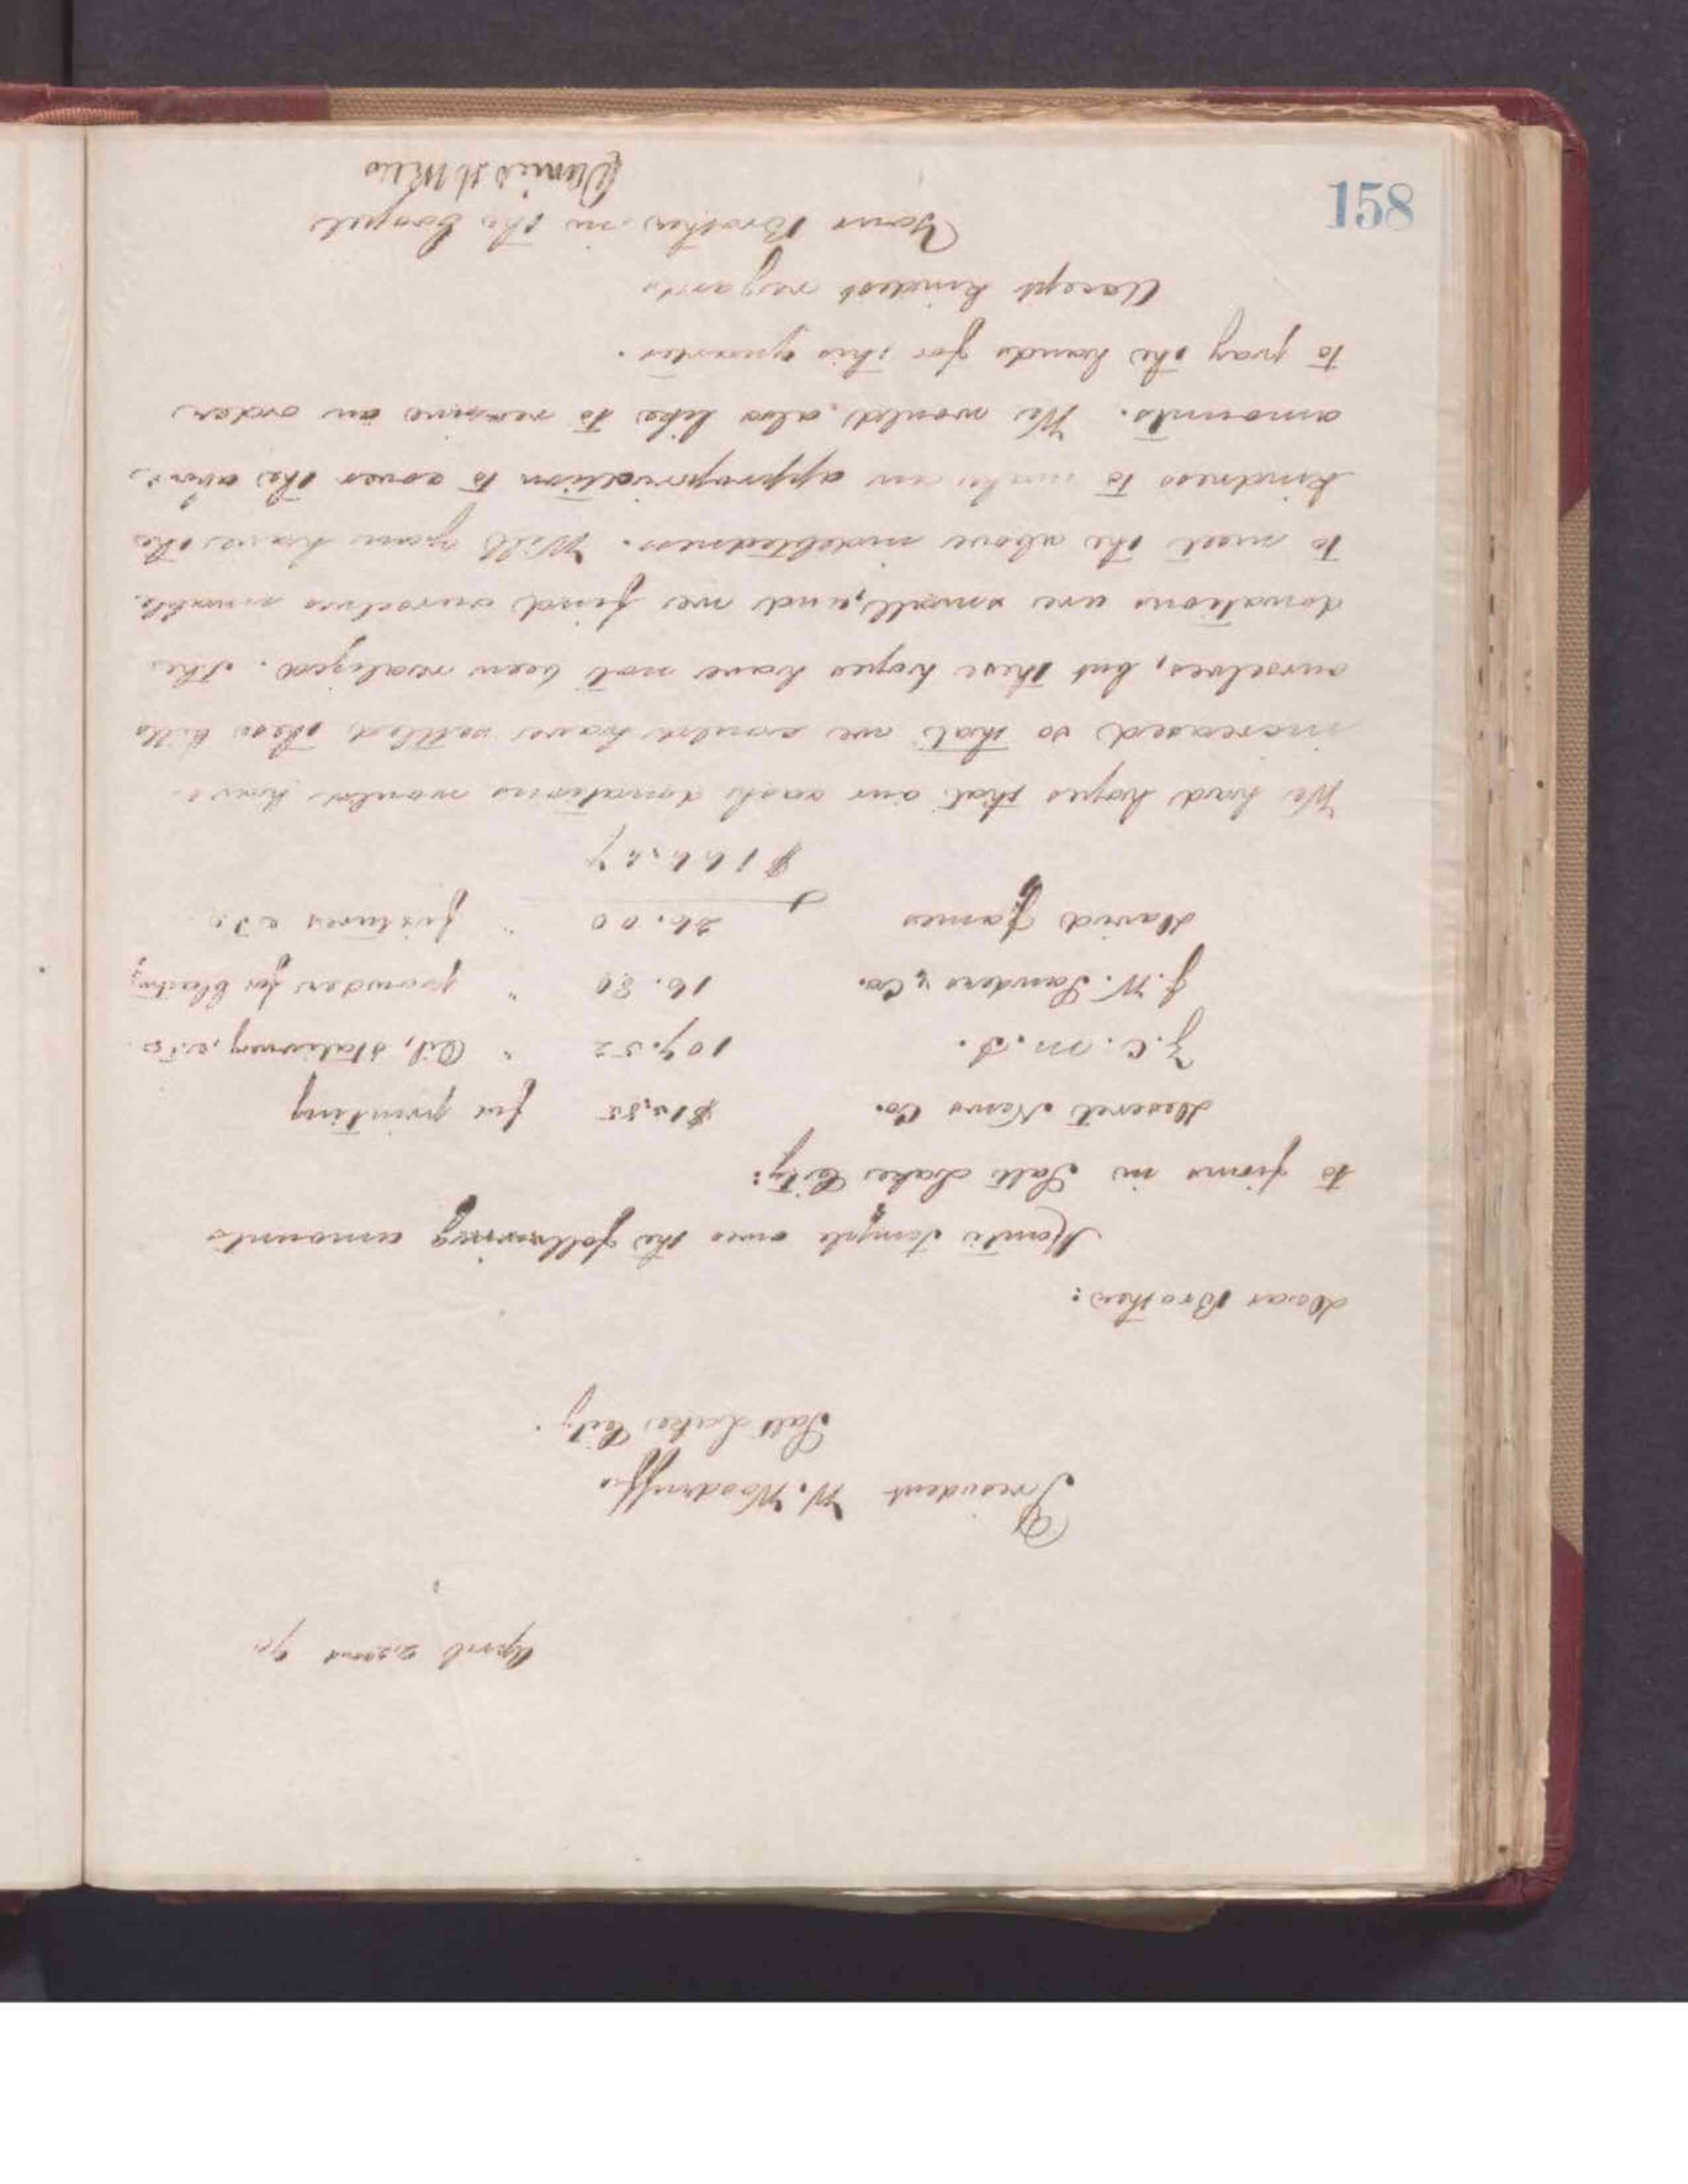 158
April 22nd 90
President W. Woodruff.
Salt Lake City.
Dear Brother:
Manti Temple owes the following amounts
to firms in Salt Lake City:
Deseret News Co. for printing
Z.C.M.I. 107.52 " Oil, Stationery, etc
J.W. Sanders & Co. 16.80 " powder for blasting
David James 26.00 " fixtures etc.
We had hopes that our cash donations would have
increased so that we could have settled these bills
ourselves, but these hopes have not been realized. The
donations are small, and we find ourselves unable
to meet the above indebtedness. Will you have the
kindness to make an appropriation to cover the above
amounts. We would also like to receive an order
to pay the hands for this quarter.
Accept kindest regards
Your Brother in the Gospel
Daniel H Wells